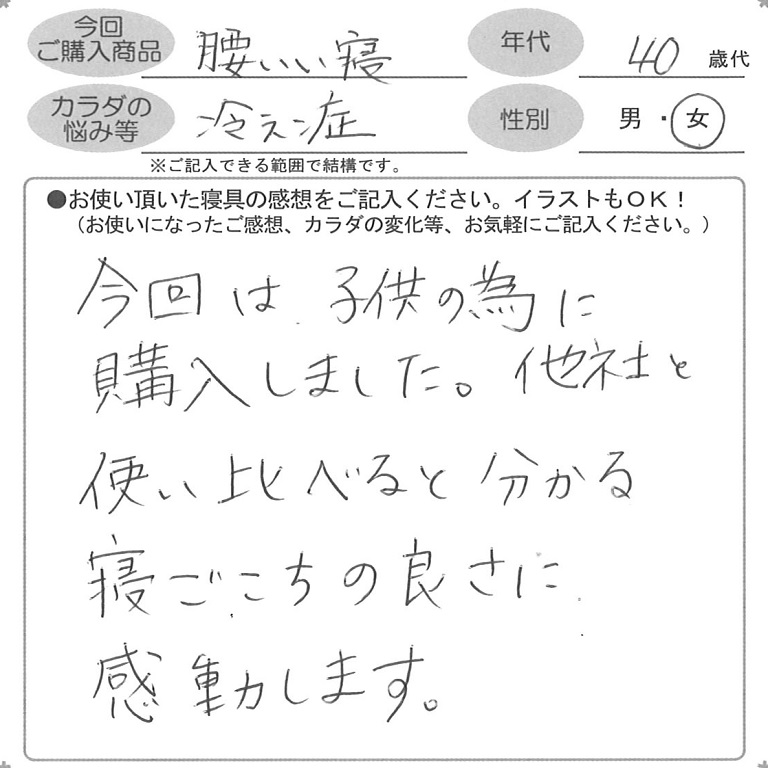 今回
ご購入商品 腰いい寝 年代 40 歳代
カラダの
悩み等 冷え症 性別 男・女
※ご記入できる範囲で結構です。
●お使い頂いた寝具の感想をご記入ください。イラストもOK!
(お使いになったご感想、カラダの変化等、お気軽にご記入ください。)
今回は子供の為に
購入しました。他社と
使い比べると分かる
寝ごこちの良さに
感動します。